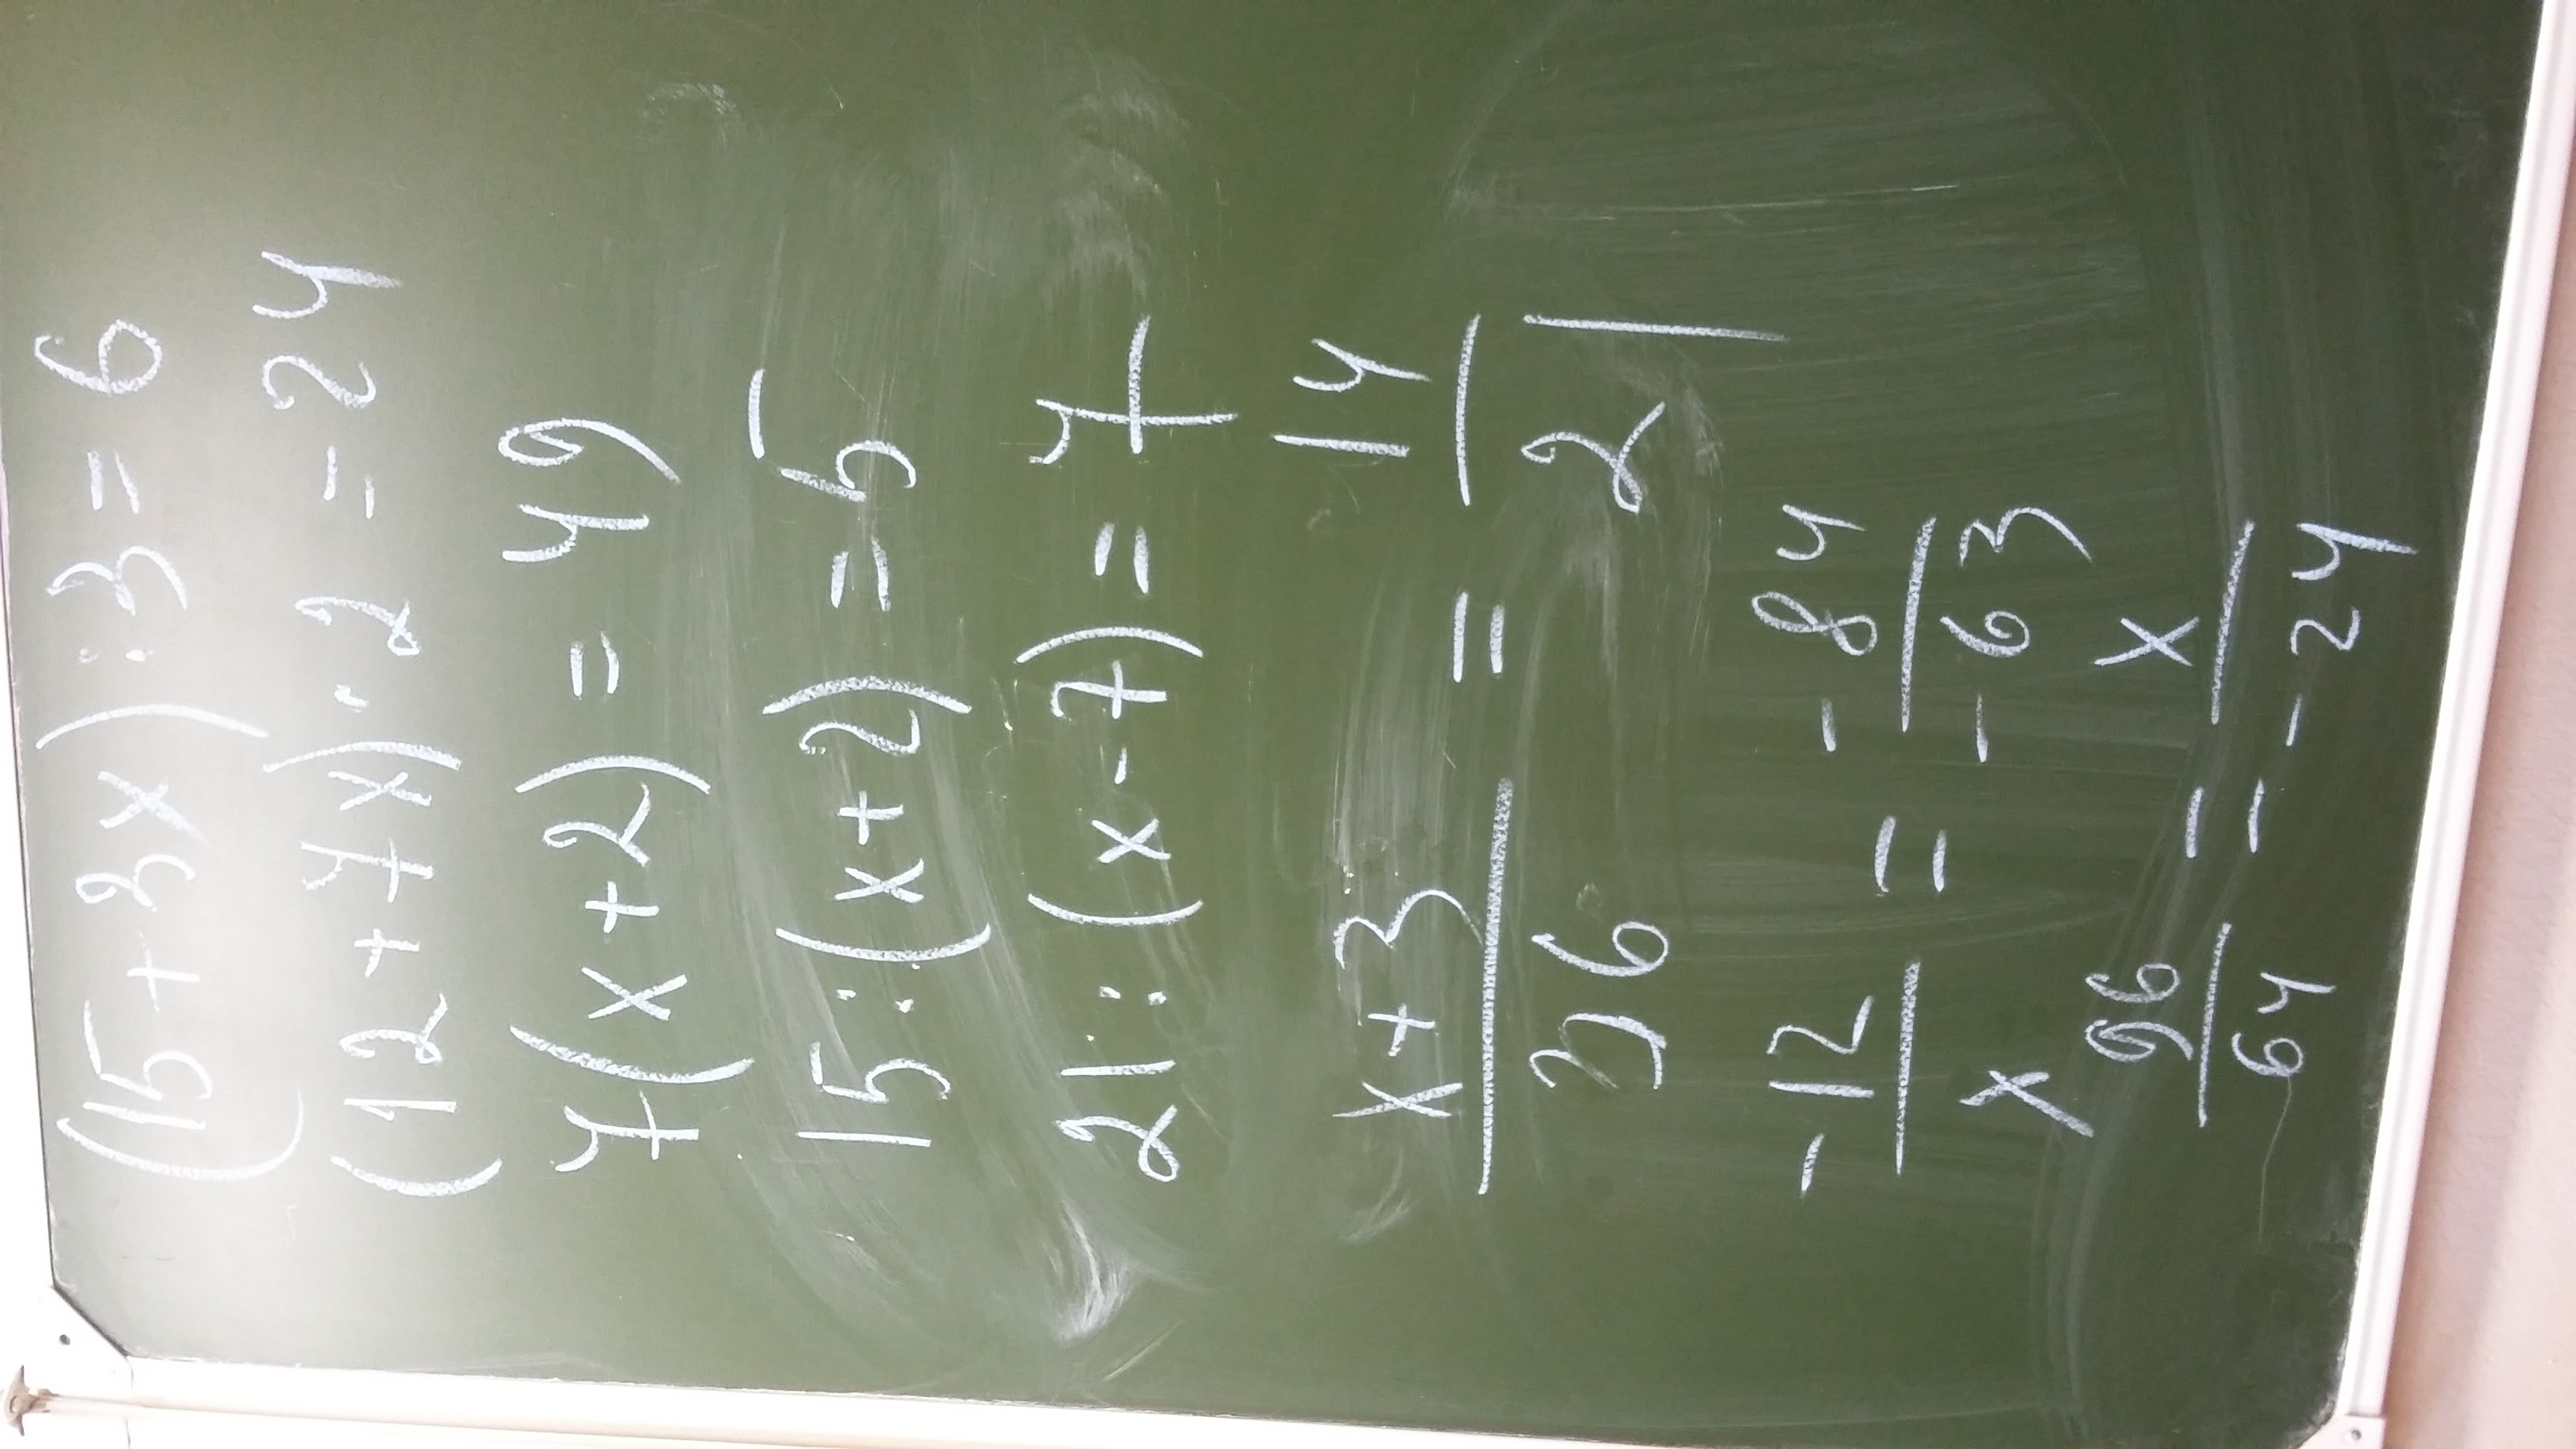 (15+3x):3=6
(12+7x)·2=24
7(x+2)=49
15:(x+2)=5
21:(x-7)=7
x+3 = 14
36 21
-12 = -84
x -63
96 = x
64 -24